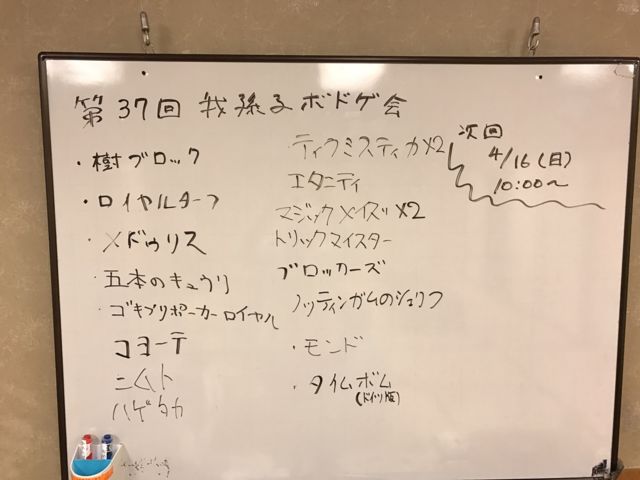 第37回 我孫子ボドゲ会
・樹ブロック
・ロイヤルターフ
・メドゥリス
・五本のキュウリ
・ゴキブリポーカーロイヤル
コヨーテ
ニムト
ハゲタカ
ティクミスティカ×2
エタニティ
マジックメイズ×2
トリックマイスター
ブロッカーズ
ノッティンガムのシェリフ
・モンド
・タイムボム
(ドイツ版)
次回
4/16(日)
10:00〜